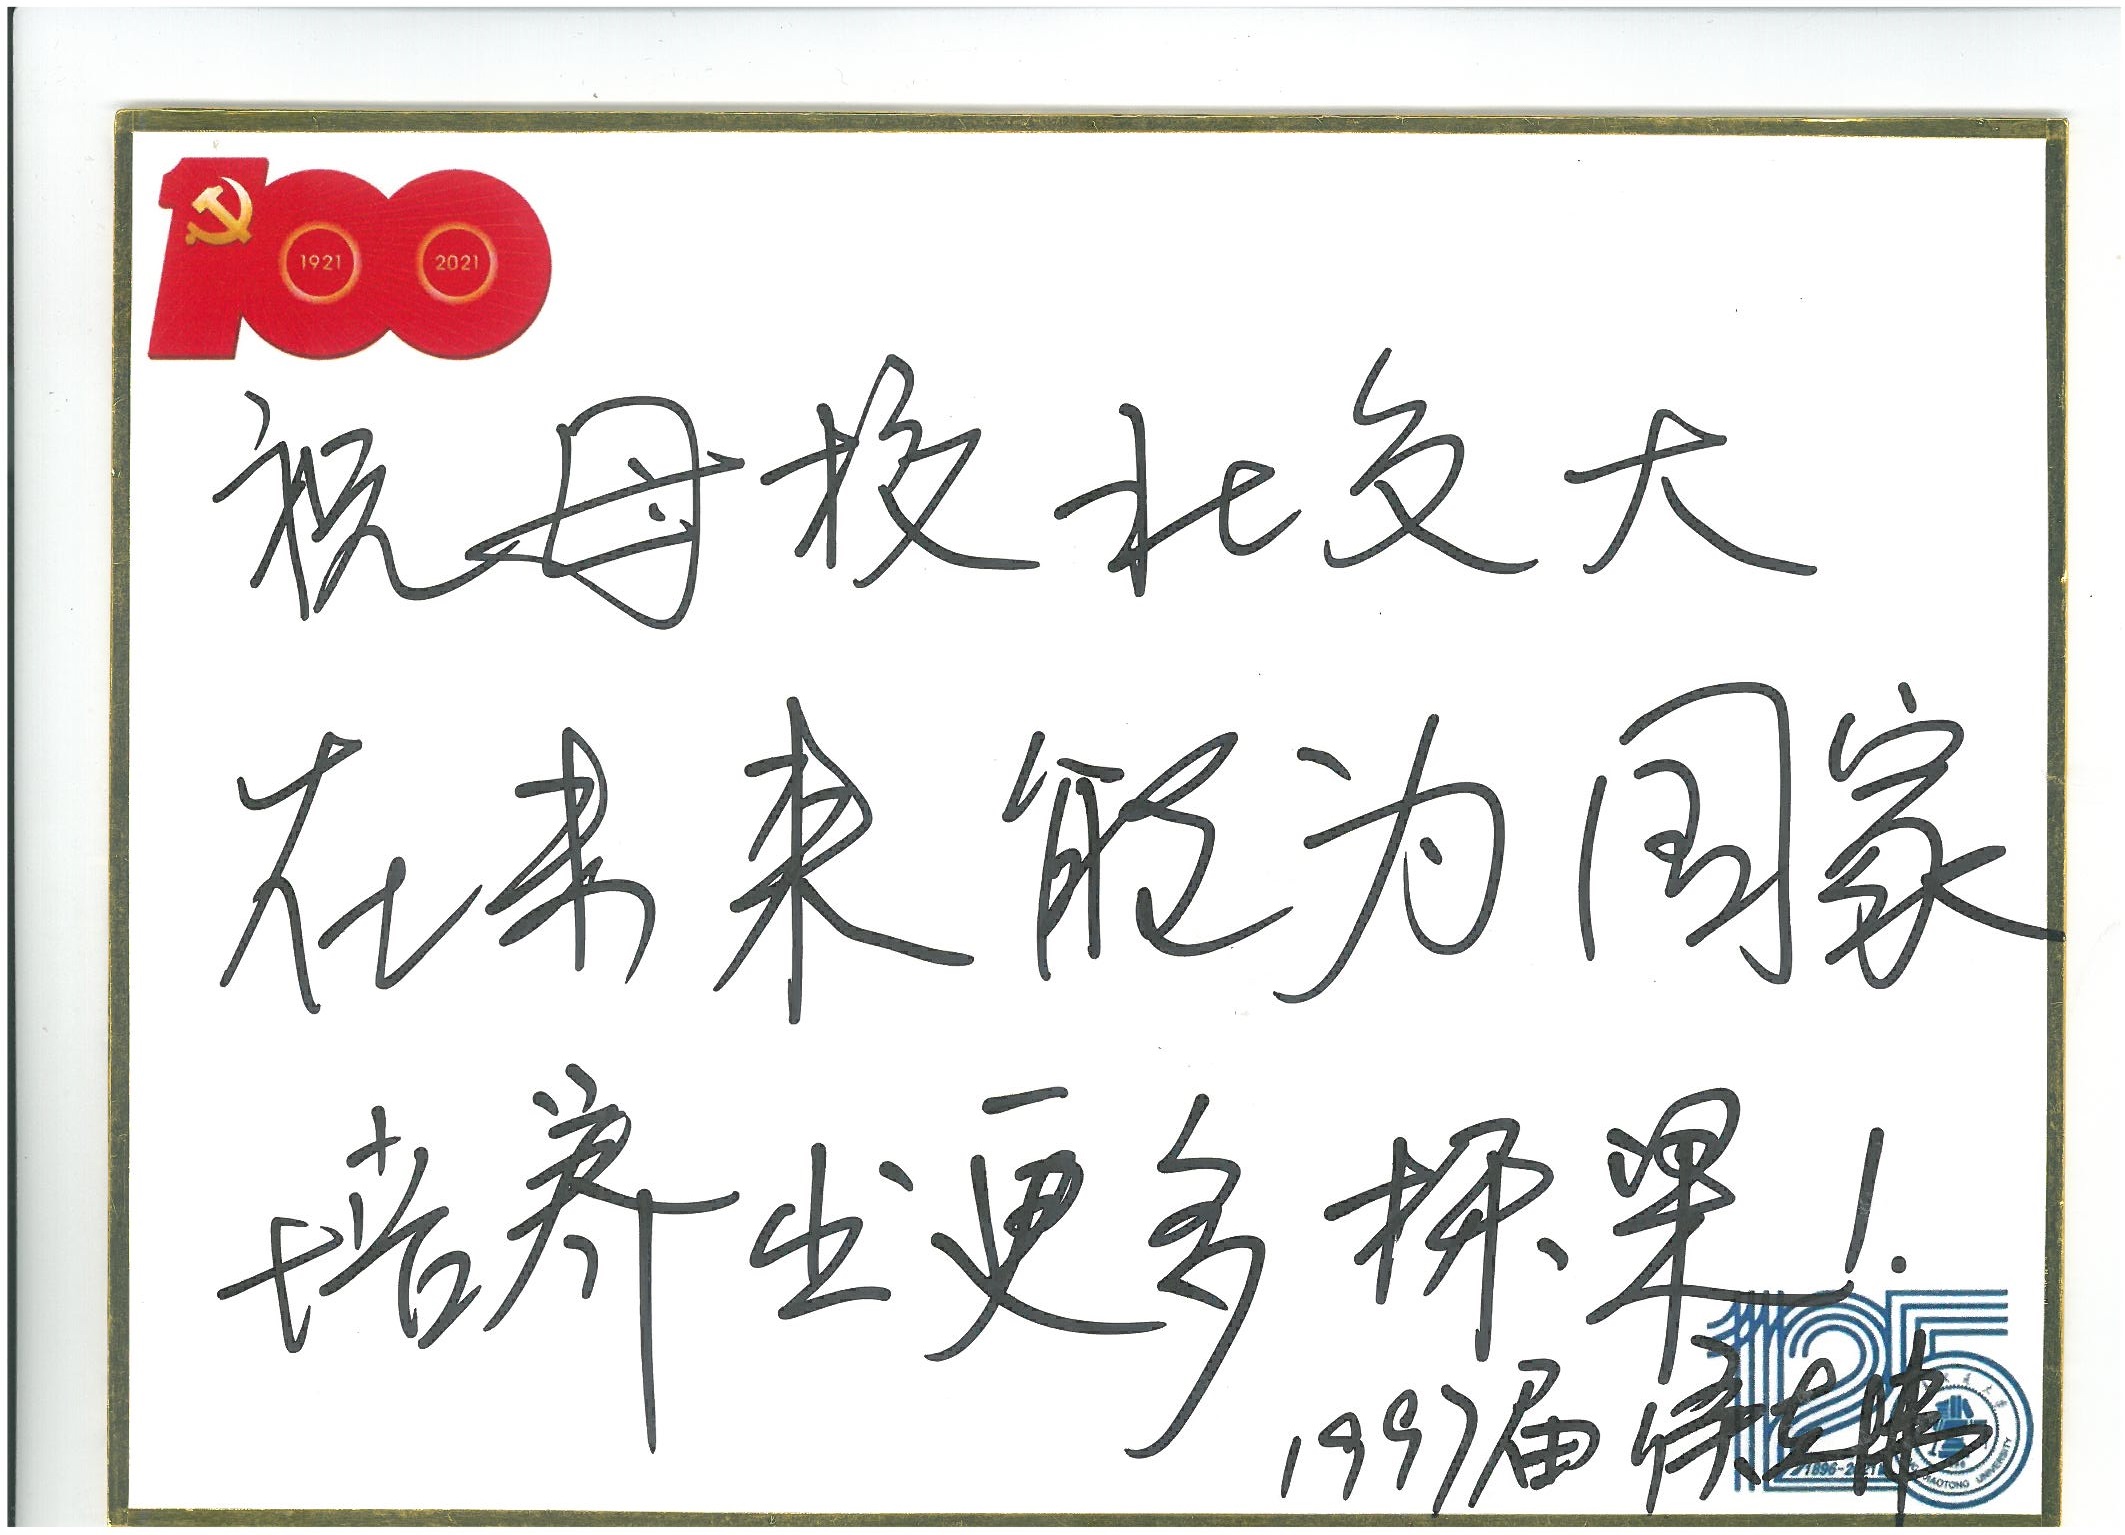 100
1921 2021
祝母校北交大
在未来能为国家
培养出更多栋梁!
125
1997届 徐
1896-2021
JIAOTONG UNIVERSITY